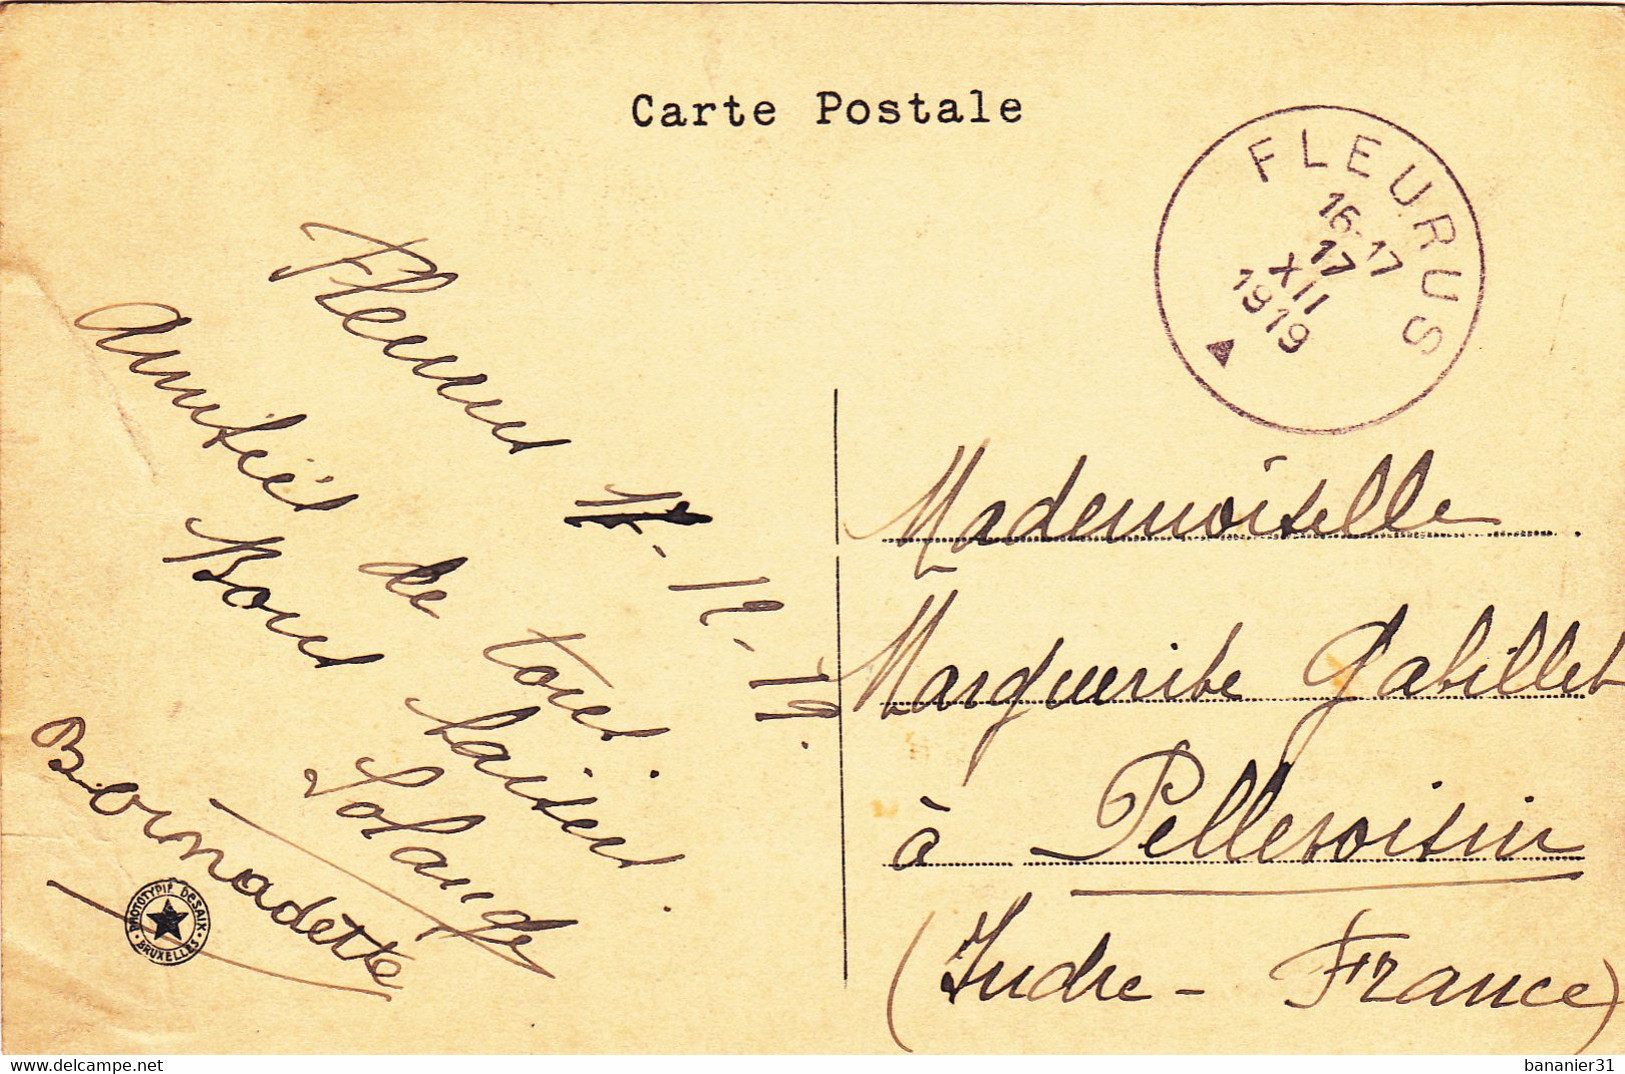 Carte Postale
FLEURUS
16-17
17
XII
1919
Fleurus 17-12-19.
Amitiés de tous.
Bons baisers.
Solange
Bernadette
PHOTOTYPIE DESAIX
BRUXELLES
Mademoiselle
Marguerite Gabillet
à Pellevoisin
(Indre - France)
delcampe.net
bananier31